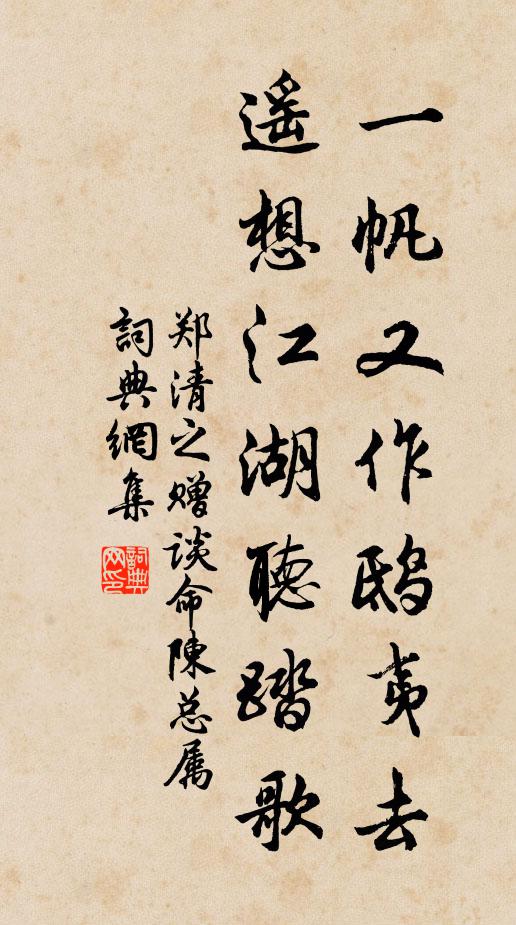 一帆又作鸱夷去
遥想江湖聽踏歌
郑清之赠谈命陳总属
詞典網集
詞典网印